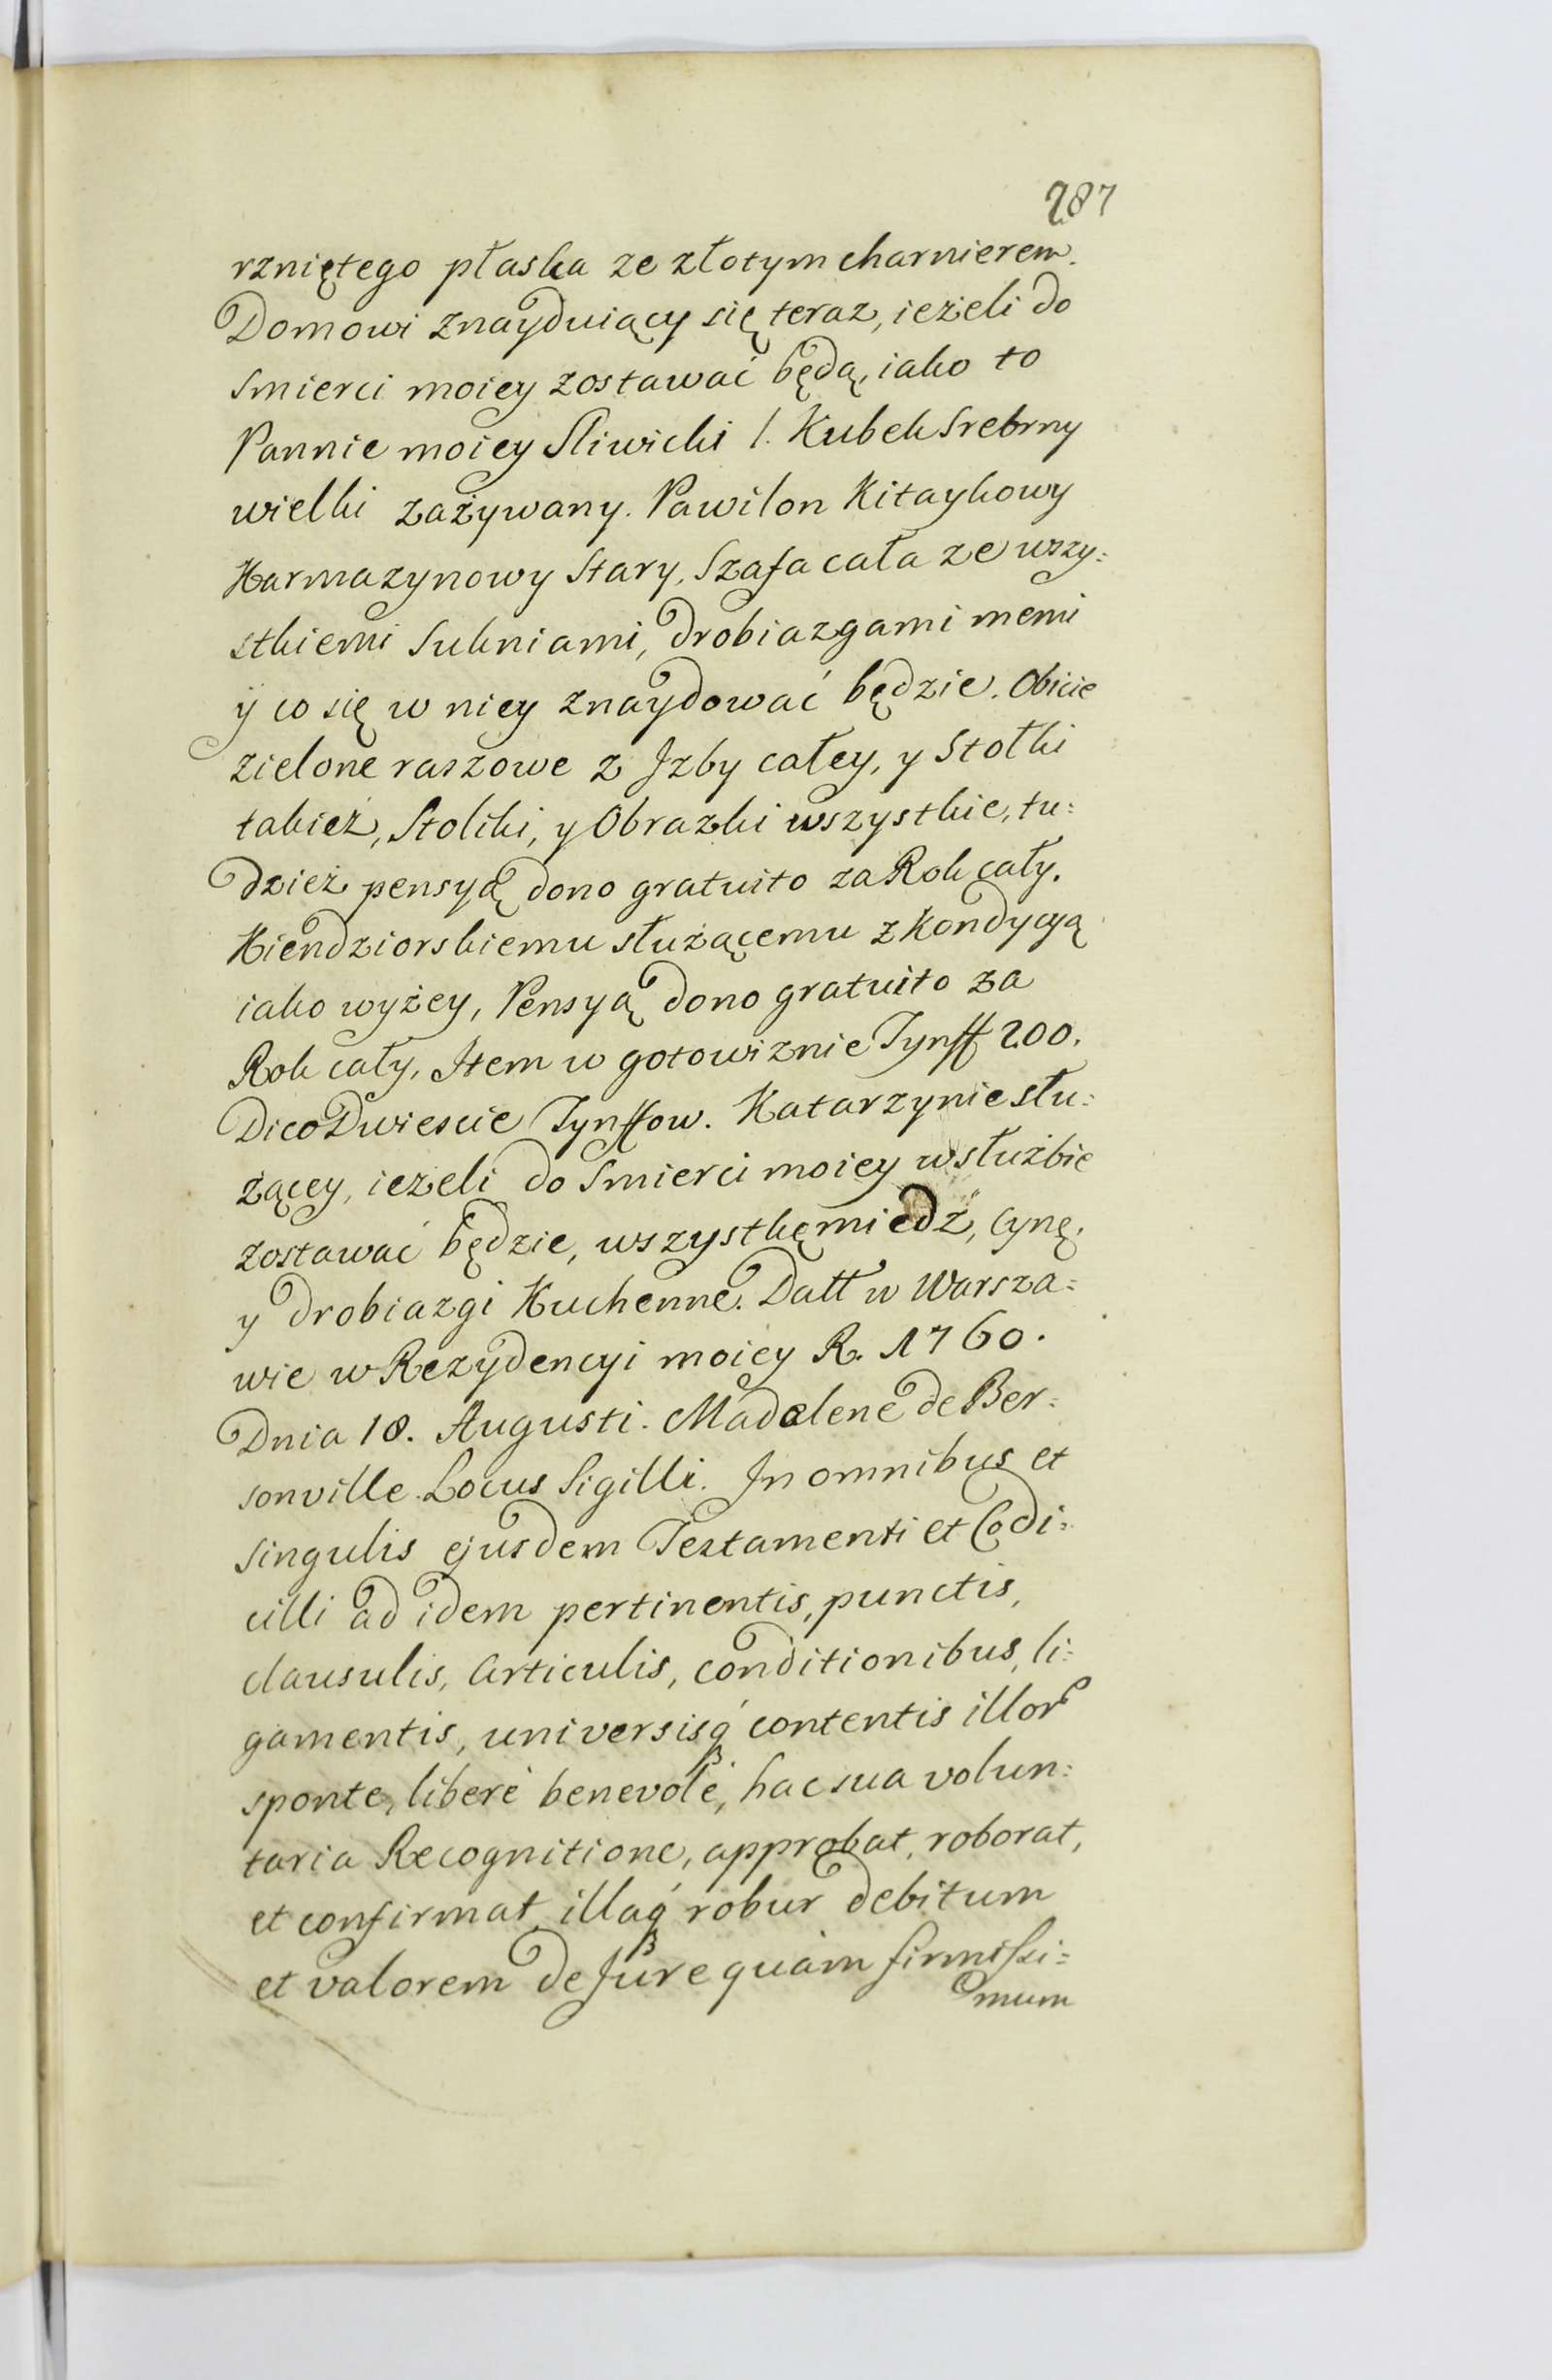 287
rzniętego płaska ze złotym charnierem.
Domowi znayduiący się teraz, ieżeli do
smierci moiey zostawać będą, iako to
Pannie moiey Sliwicki /. Kubek Srebrny
wielki zażywany. Pawilon Kitaykowy
Karmazynowy Stary, Szafa cała ze wszy=
stkiemi Sukniami, drobiazgami memi
ÿ co się w niey znaydować będzie. Obicie
zielone raszowe z Jzby całey, y Stołki
takież, Stoliki, y Obrazki wszystkie, tu=
dzież pensyą dono gratuito za Rok cały.
Kiendziorskiemu służącemu z Kondycyą
iako wyżey, Pensyą dono gratuito za
Rok cały, Jtem w gotowiznie Tynff 200.
Dico Dwiescie Tynffow. Katarzynie słu=
żącey, ieżeli do Smierci moiey w służbie
zostawać będzie, wszystkę miedź, Cynę,
y drobiazgi Kuchenne. Datt w Warsza=
wie w Rezydencyi moiey R. 1760.
Dnia 18. Augusti. Madalene de Ber=
sonville Locus Sigilli. Jn omnibus et
singulis ejusdem Testamenti et Codi=
cilli ad idem pertinentis, punctis,
clausulis, Articulis, conditionibus, li=
gamentis, universisq́ contentis illor
sponte, liberè benevolè, hac sua volun=
taria Recognitione, approbat, roborat,
et confirmat, illaq́ robur debitum
et valorem de Jure quàm firmissi=
mum